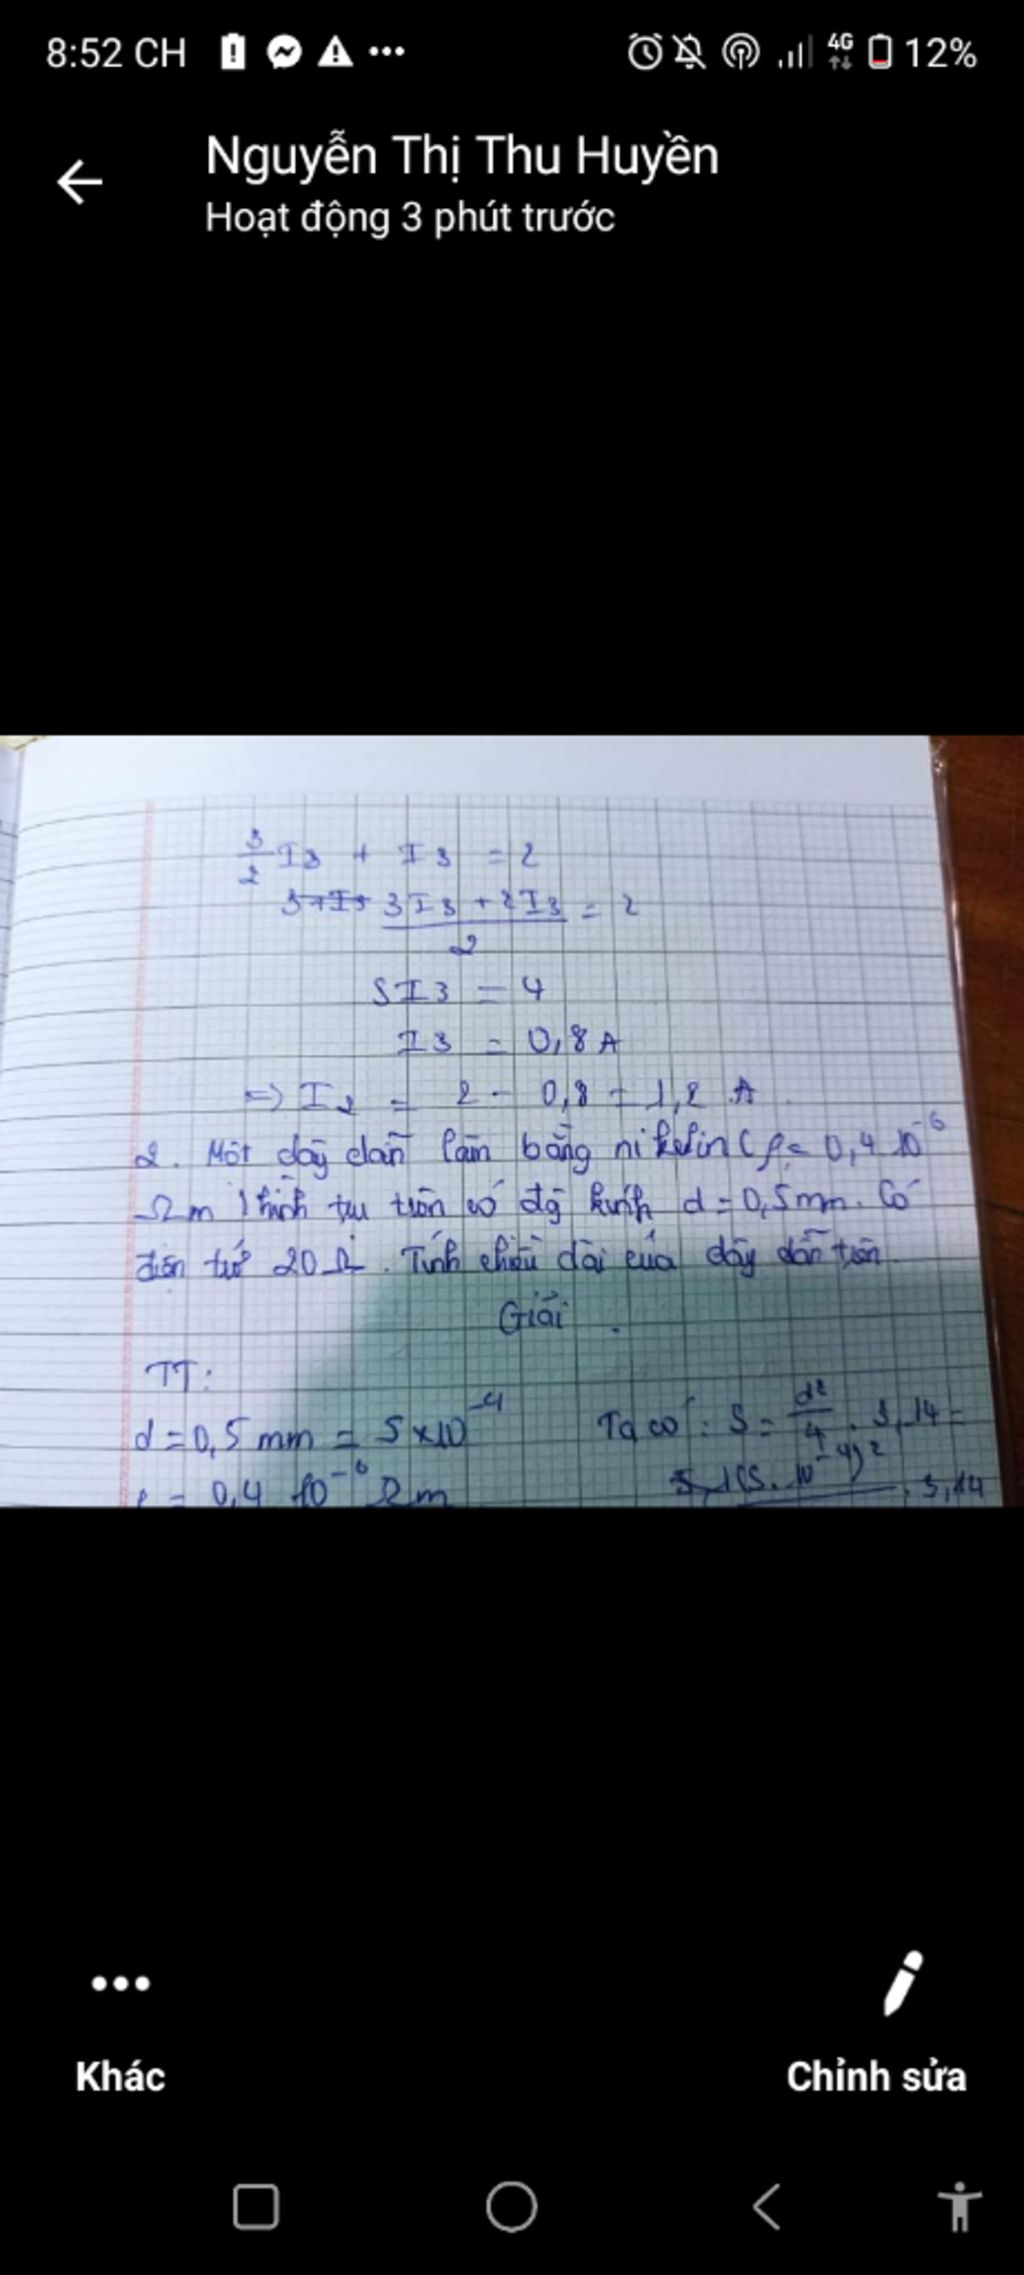 8:52 CH
4G
12%
Nguyễn Thị Thu Huyền
Hoạt động 3 phút trước
3/2 I3 + I3 = 2
3+I3 3I3 + 2I3 / 2 = 2
5I3 = 4
I3 = 0,8 A
=> I2 = 2 - 0,8 = 1,2 A
2. Một dây dẫn làm bằng nikelin (ρ = 0,4 10^-6
Ωm) hình trụ tròn có đg kính d = 0,5mm. Có
điện trở 20Ω. Tính chiều dài của dây dẫn trên.
Giải.
TT:
d = 0,5 mm = 5×10^-4
Ta có: S = d²/4 . 3,14 =
= 0,4 10^-6 Ωm
(5.10^-4)² . 3,14
Khác
Chỉnh sửa